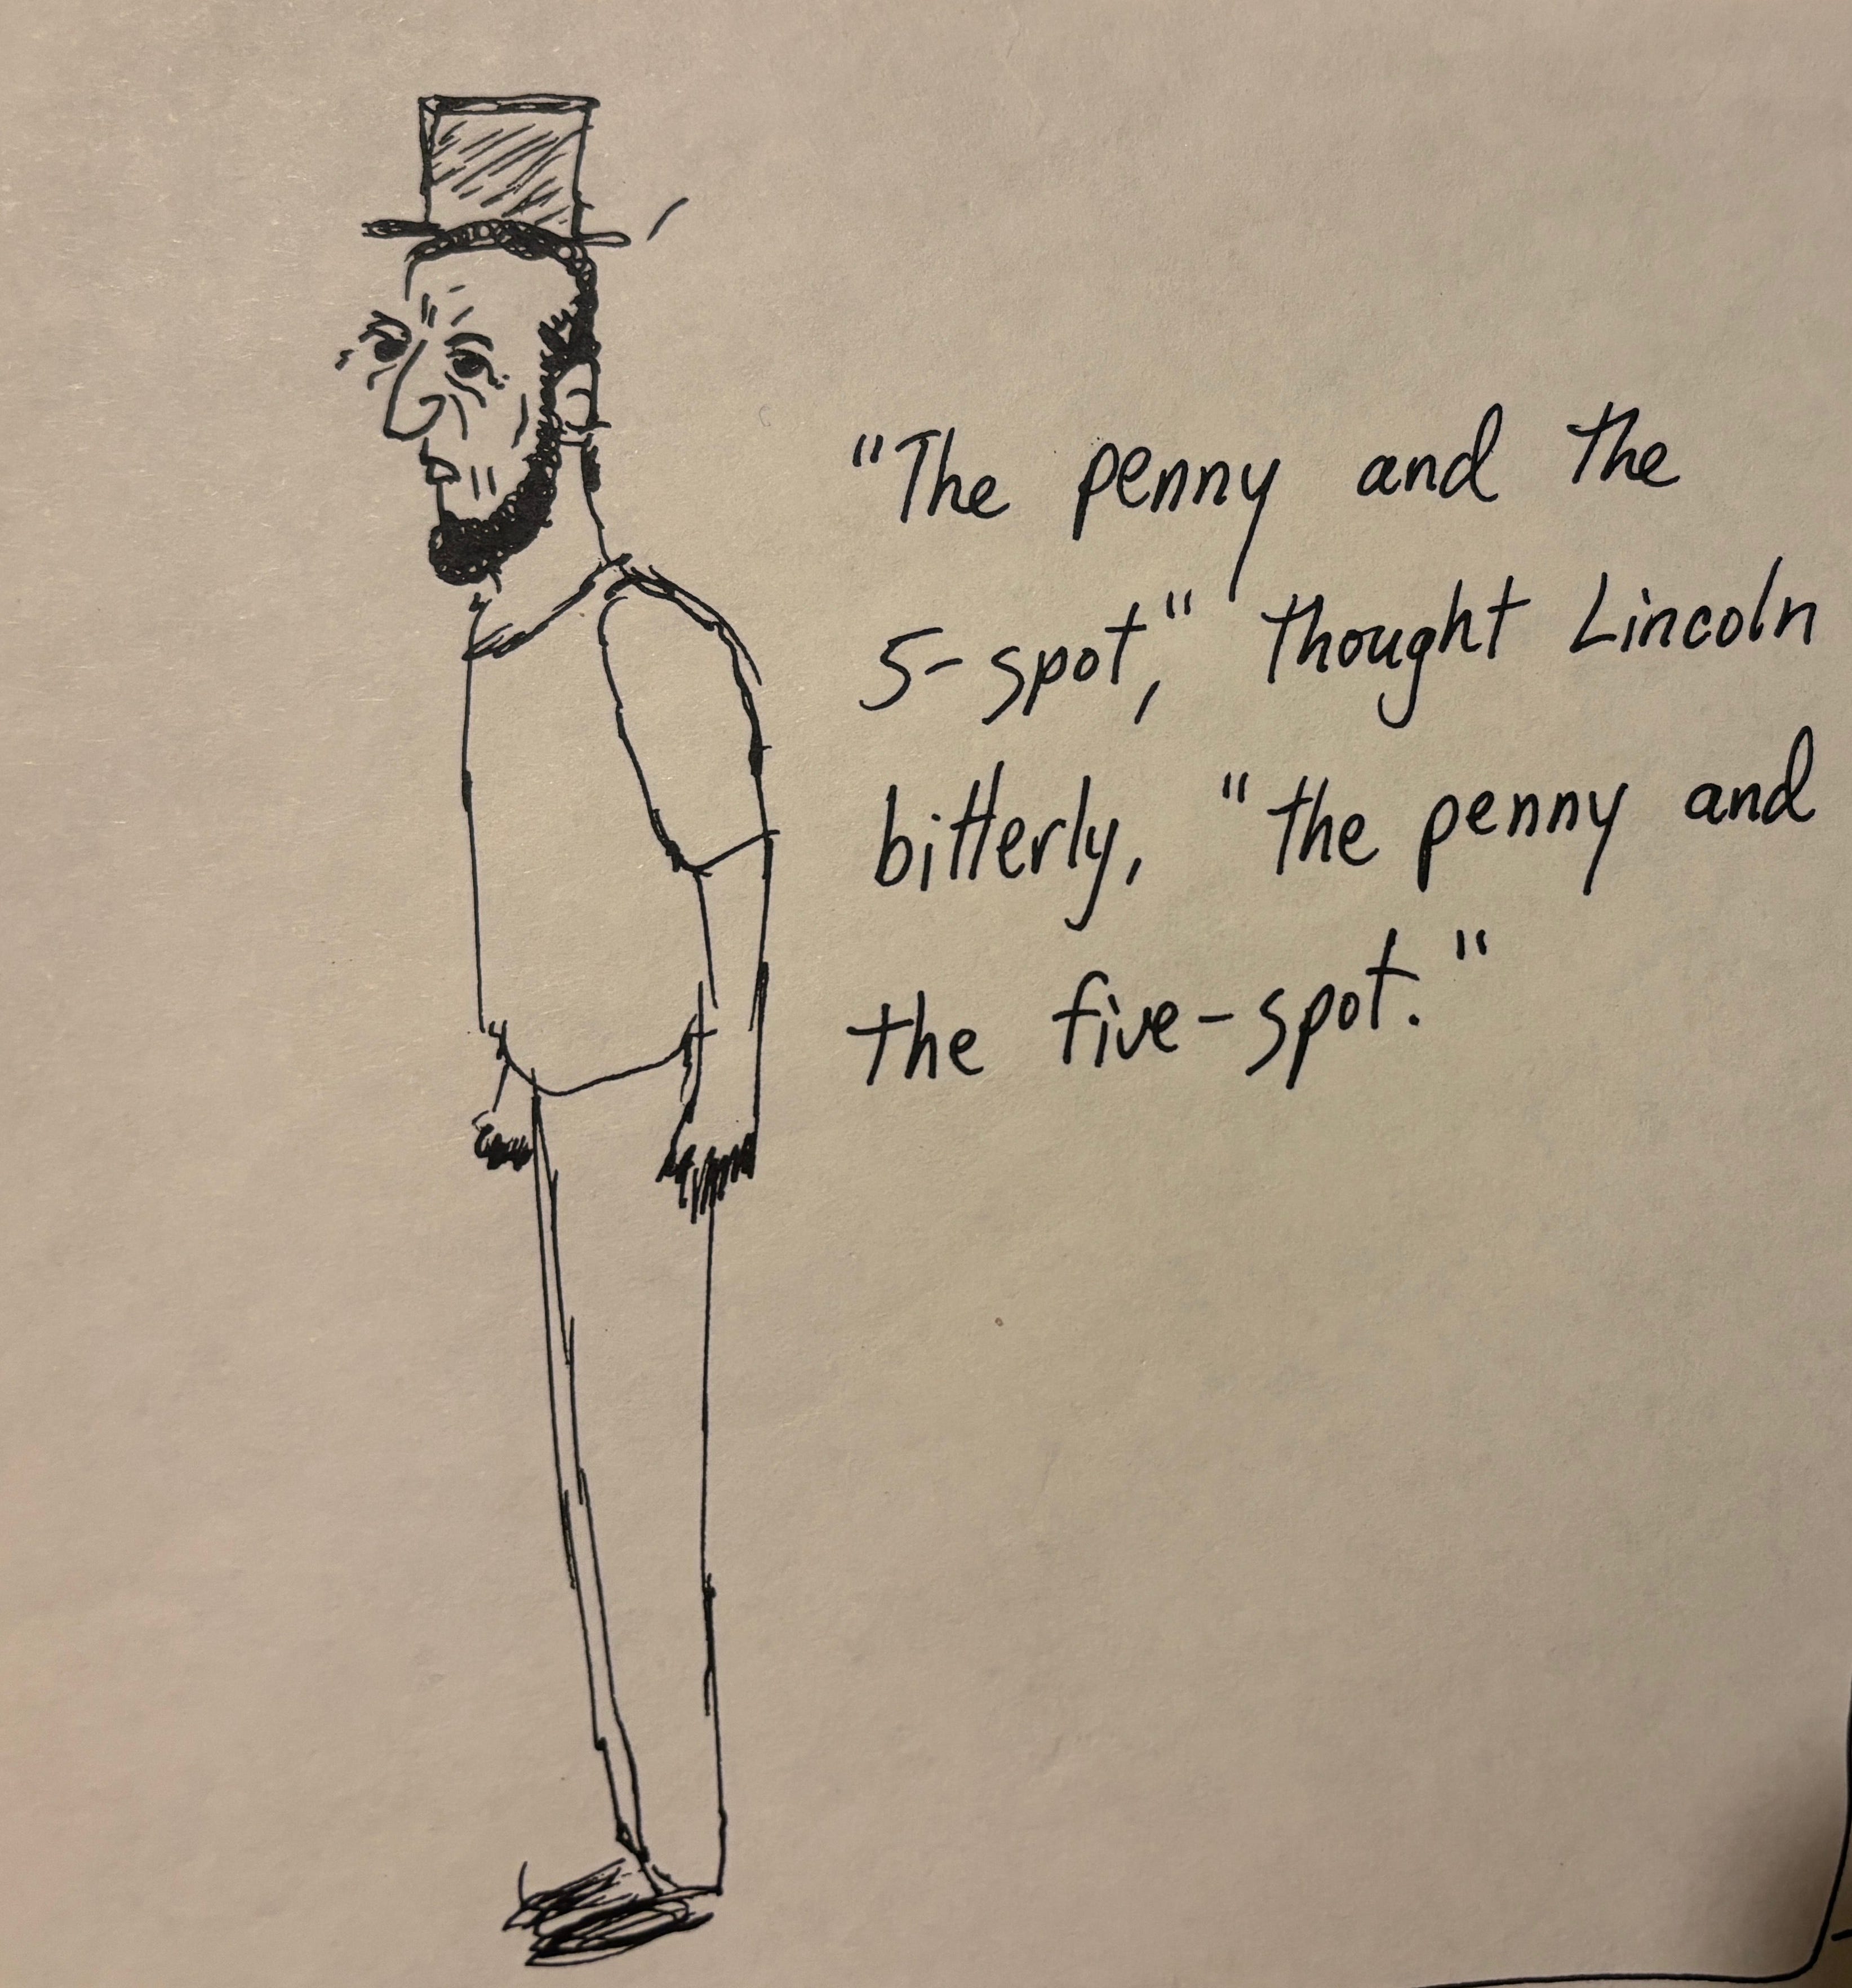 "The penny and the
5-spot," thought Lincoln
bitterly, "the penny and
the five-spot."